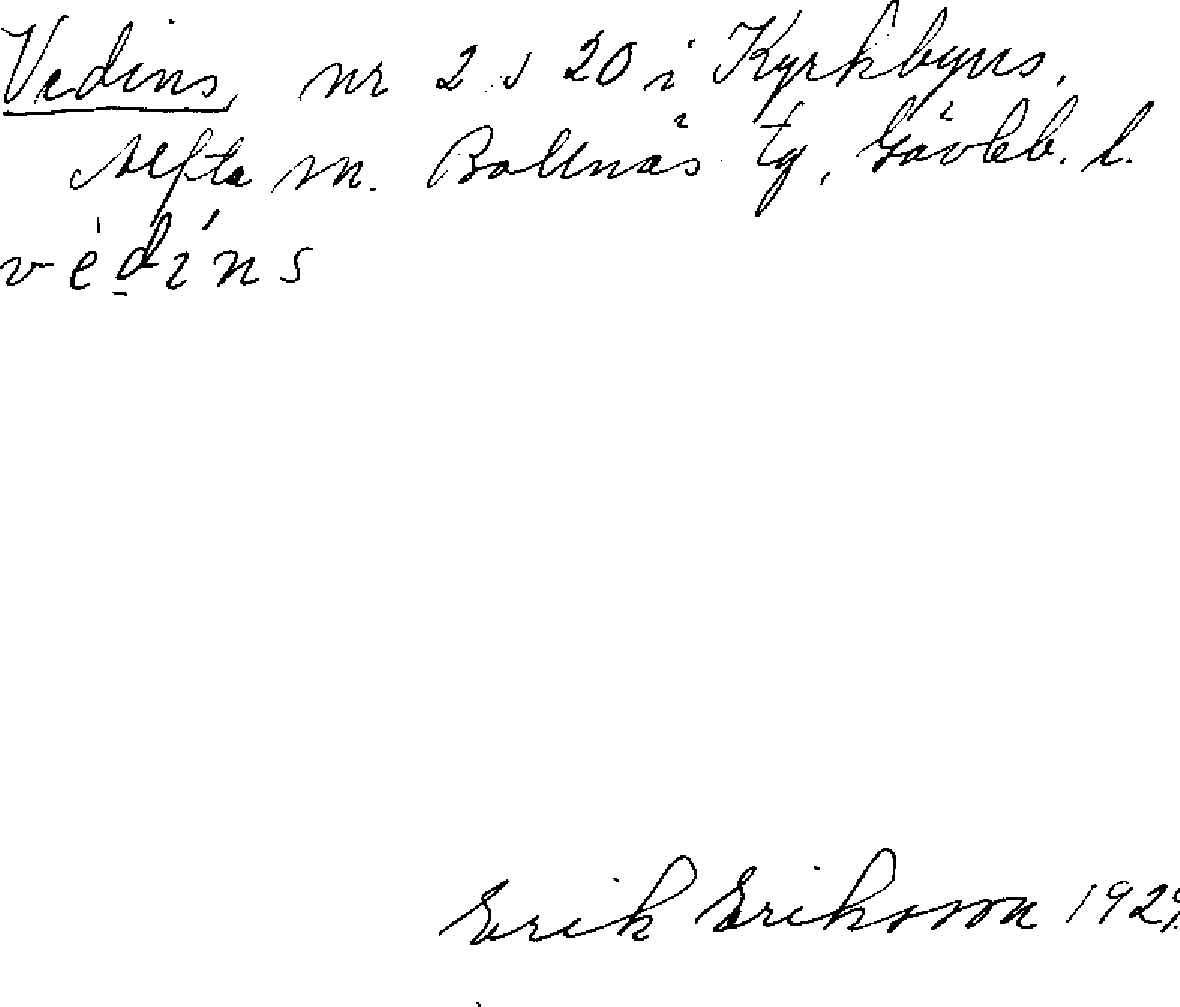 Vedins, nr 2 o 20 i Kyrkbyns,
Alfta sn. Bollnäs tg, Gävleb. l.
vèdíns
Erik Eriksson